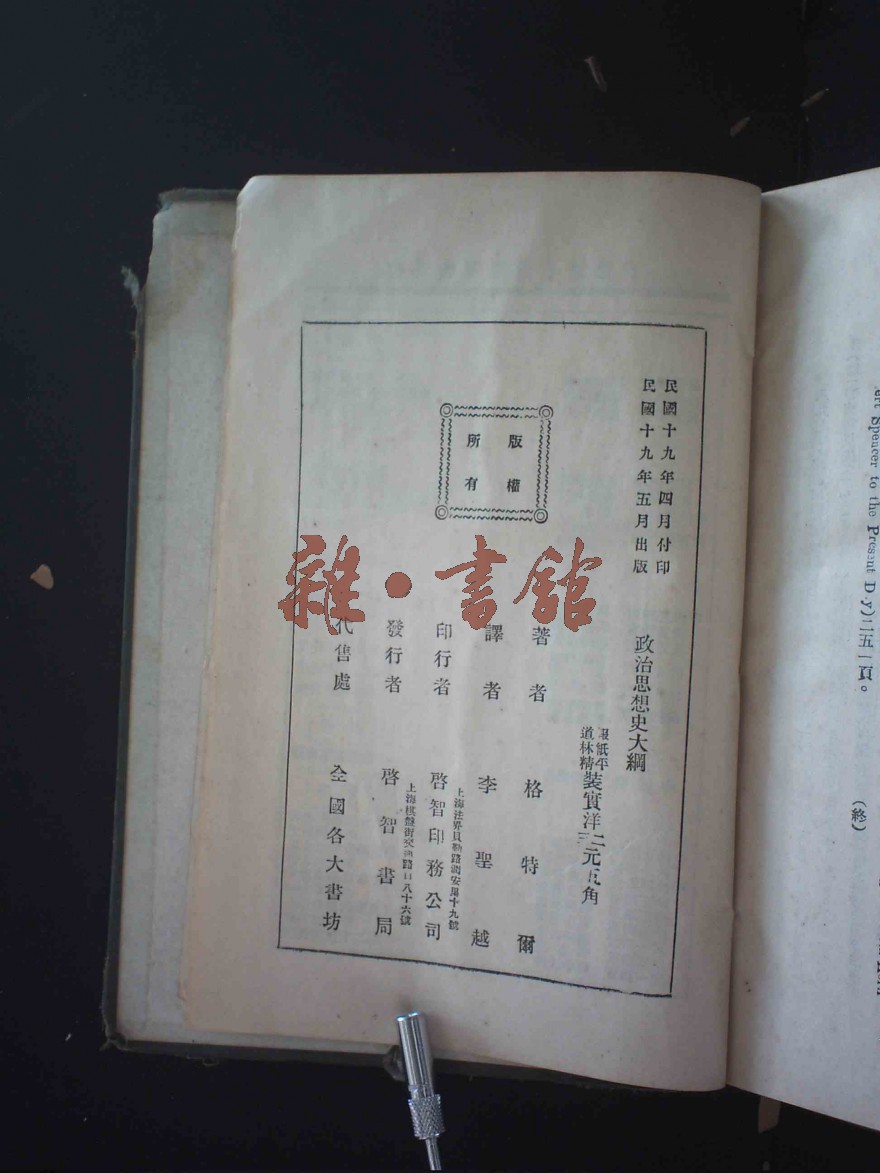 民國十九年四月付印
民國十九年五月出版
版權
所有
政治思想史大綱
報紙平
道林精
裝實洋
二
三
元五角
著者 格特爾
譯者 李聖越
上海法界貝勒路
十九號
印行者 啓智印務公司
上海棋盤街交通路
八十六號
發行者 啓智書局
代售處 全國各大書坊
雜·書館
Spencer to the Present D.y)二五一頁。
(終)